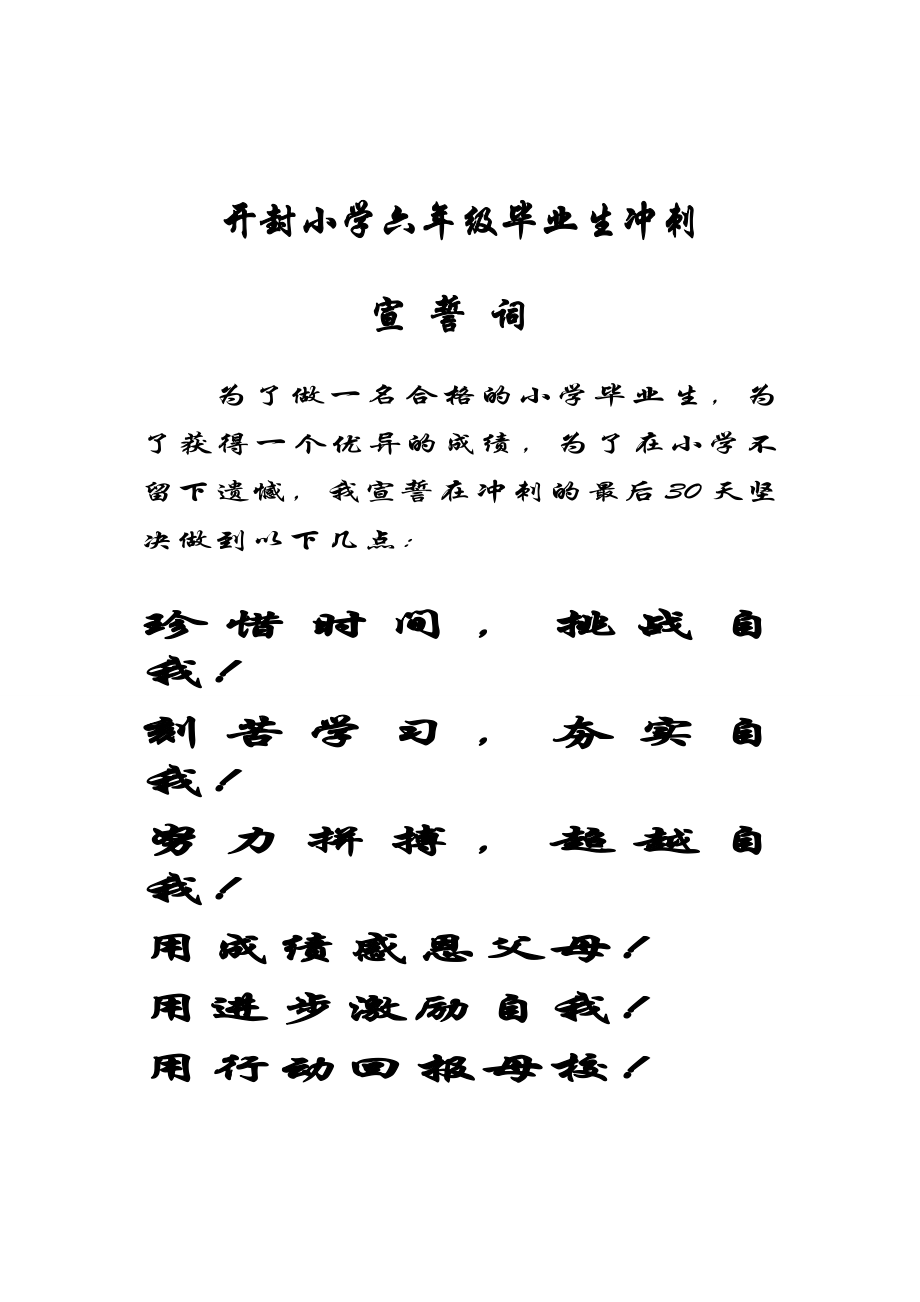 开封小学六年级毕业生冲刺
宣誓词
为了做一名合格的小学毕业生，为
了获得一个优异的成绩，为了在小学不
留下遗憾，我宣誓在冲刺的最后30天坚
决做到以下几点：
珍惜时间，挑战自
我！
刻苦学习，夯实自
我！
努力拼搏，超越自
我！
用成绩感恩父母！
用进步激励自我！
用行动回报母校！